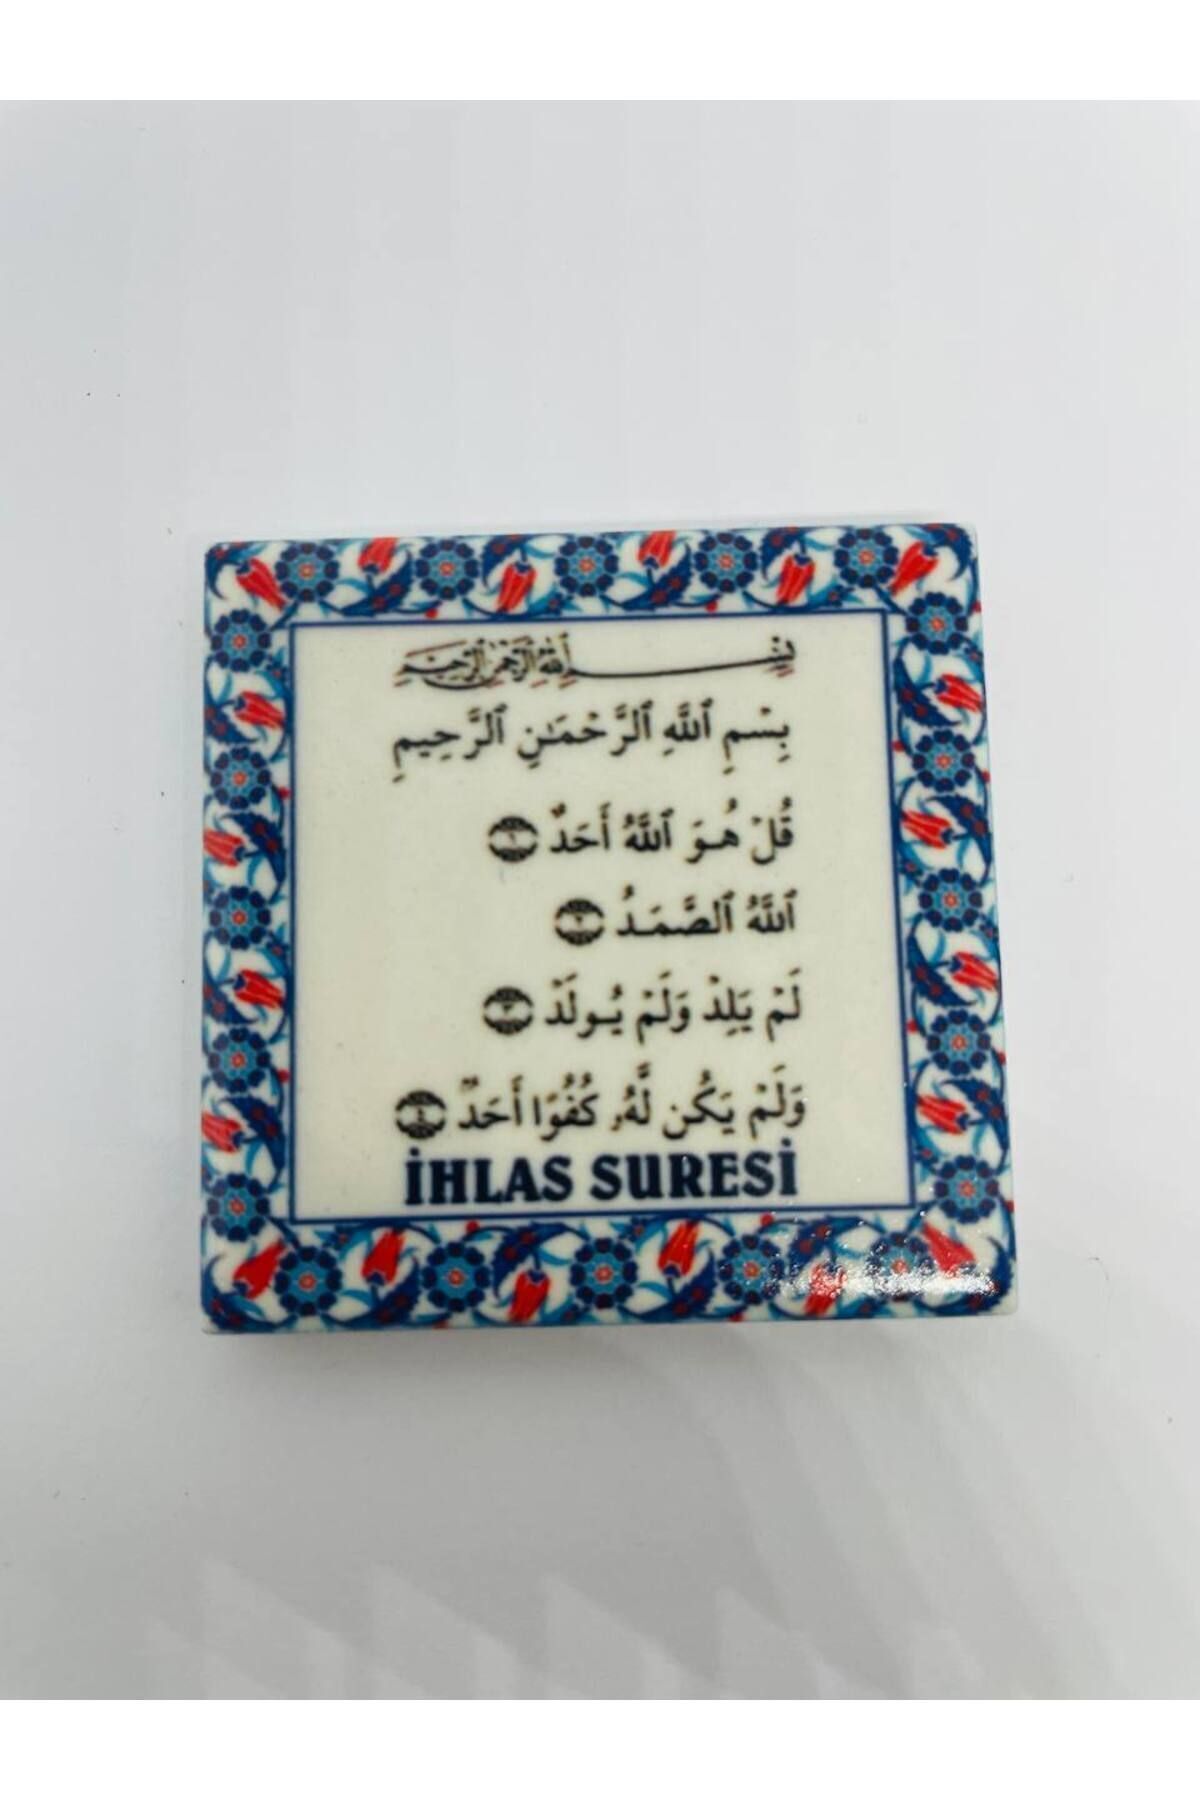 بسم الله الرحمن الرحيم
بِسْمِ ٱللَّهِ ٱلرَّحْمَـٰنِ ٱلرَّحِيمِ
قُلْ هُوَ ٱللَّهُ أَحَدٌ ١
ٱللَّهُ ٱلصَّمَدُ ٢
لَمْ يَلِدْ وَلَمْ يُولَدْ ٣
وَلَمْ يَكُن لَّهُۥ كُفُوًا أَحَدٌۢ ٤
İHLAS SURESİ